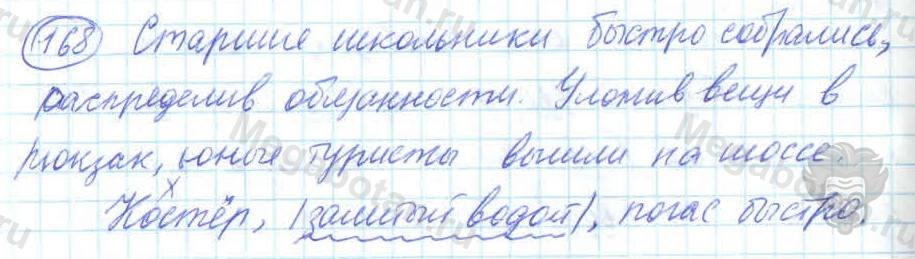 168 Старшие школьники быстро собрались,
распределив обязанности. Уложив вещи в
рюкзак, юные туристы вышли на шоссе.
Костёр, |залитый водой|, погас быстро.